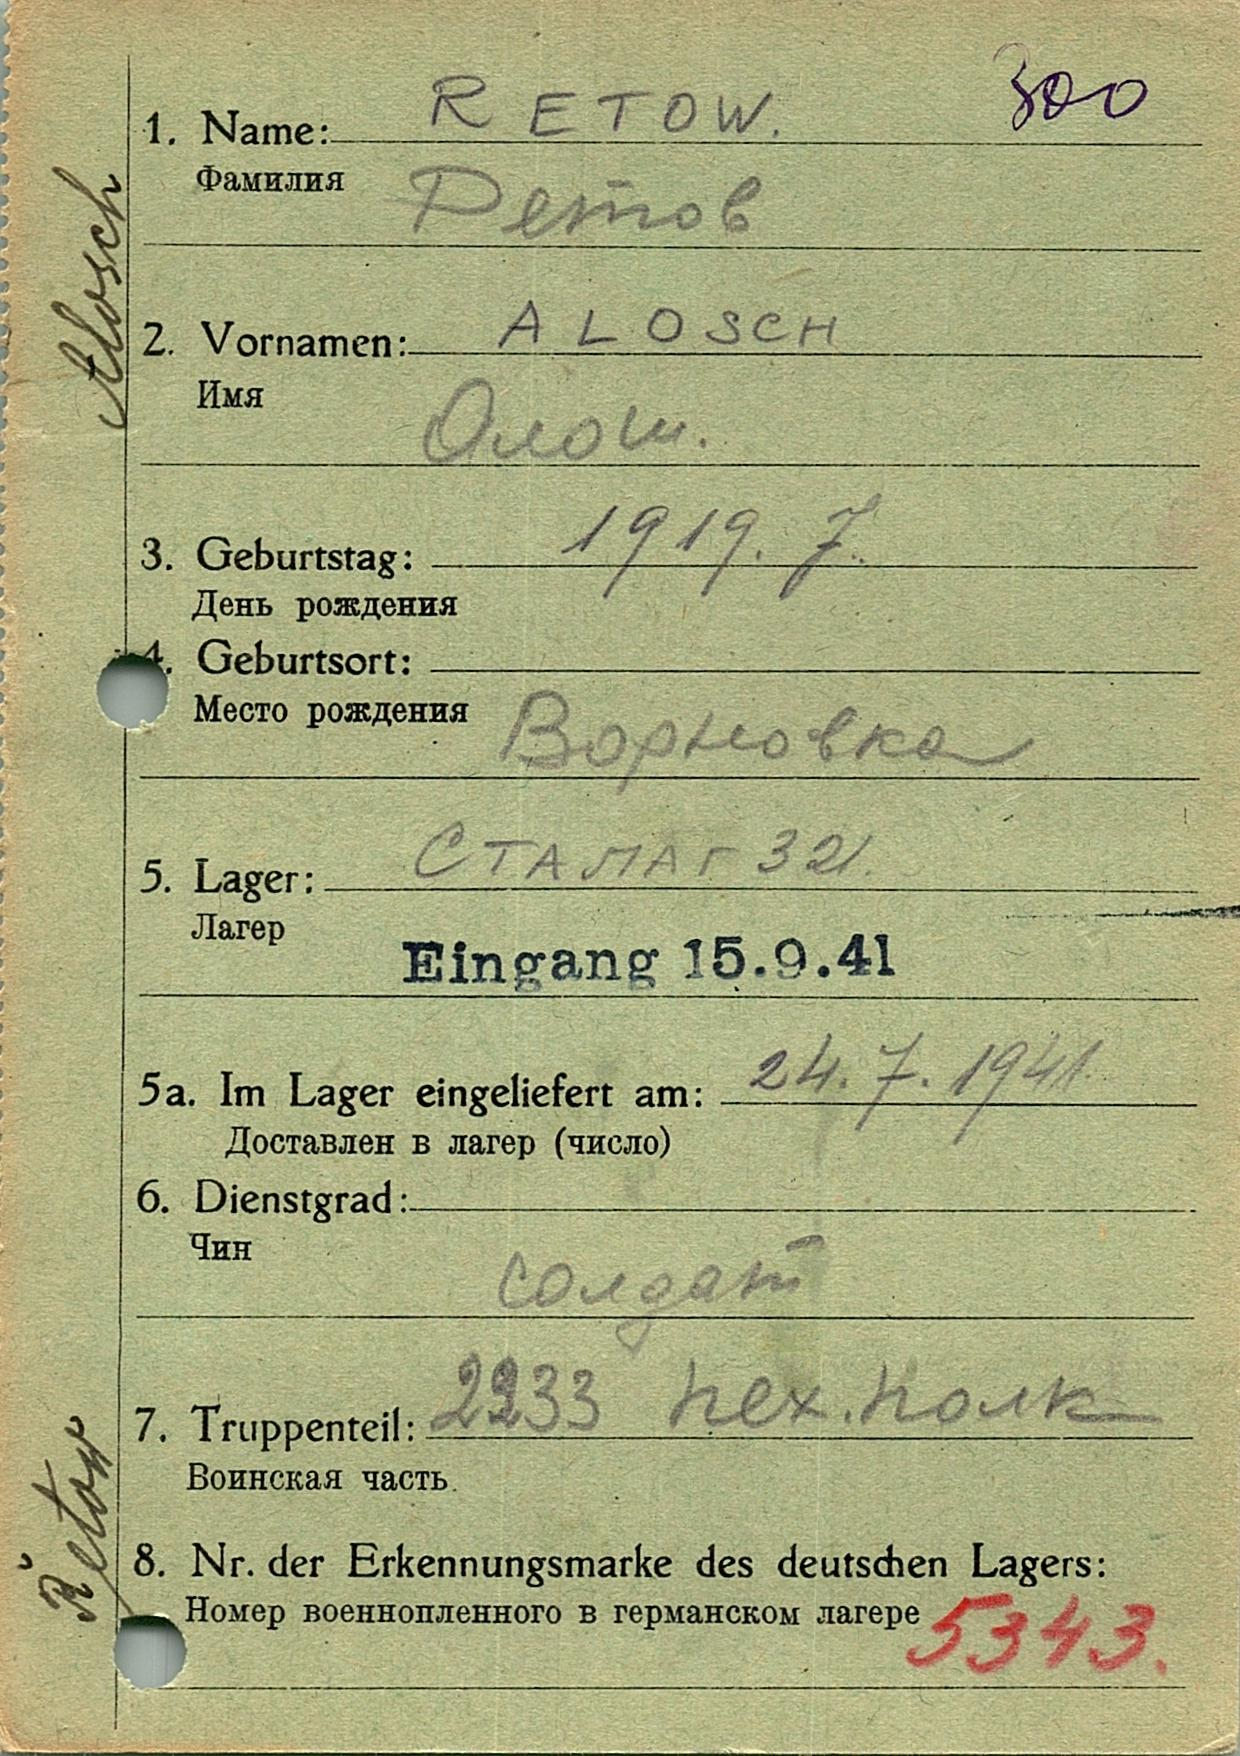 300
1. Name: RETOW.
Фамилия
Ретов
2. Vornamen: ALOSCH
Имя
Олош.
3. Geburtstag: 1919. 7.
День рождения
4. Geburtsort:
Место рождения
Ворновка
5. Lager: СТАЛАГ 321.
Лагер
Eingang 15.9.41
5a. Im Lager eingeliefert am: 24.7.1941.
Доставлен в лагер (число)
6. Dienstgrad:
Чин
солдат
7. Truppenteil: 2233 пех. полк
Воинская часть
8. Nr. der Erkennungsmarke des deutschen Lagers:
Номер военнопленного в германском лагере
5343.
Retow
Alosch